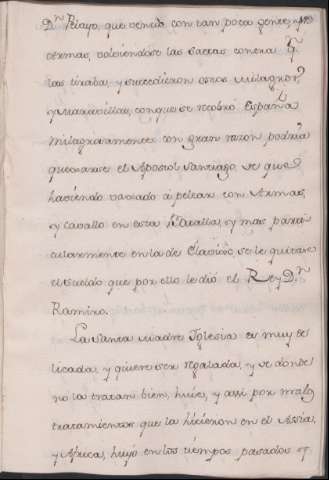 Dⁿ Pelayo, que venció con tan poca gente
volviendose las saetas contra qⁿ
las tiraba, y sucedieron otros milagros,
y maravillas, conque se recobró España
milagrosamente con gran razon podria
quexarse el Apostol Santiago de que
haviendo vaxado á pelear con Armas,
y cavallo en esta Batalla, y mas parti
cularmente en la de Clavijo, se le quitase
el sueldo que por ello le dió el Rey Dⁿ
Ramiro.
La Santa Madre Iglesia es muy de
licada, y quiere ser regalada, y de donde
no la tratan bien, huie, y assi por malos
tratamientos que la hicieron en el Assia,
y Africa, huyó en los tiempos pasados